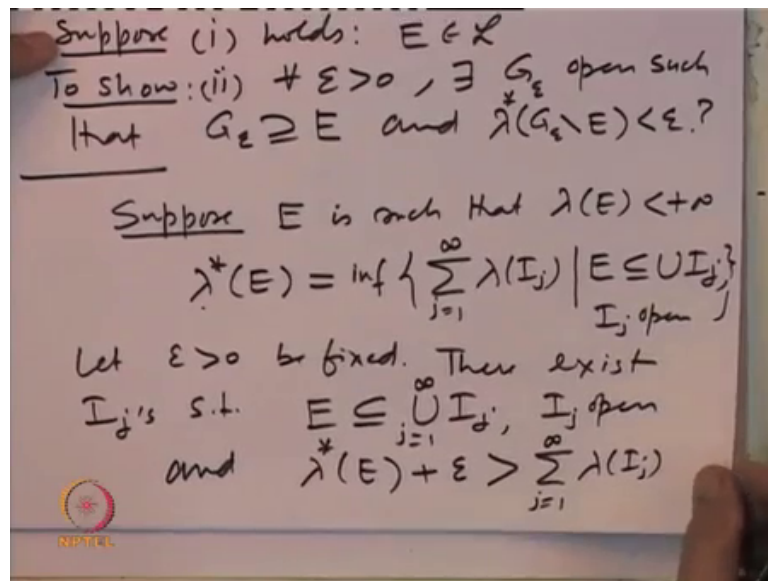 Suppose (i) holds: E ∈ ℒ
To show: (ii) ∀ ε>0, ∃ G_ε open such
that G_ε ⊇ E and λ*(G_ε∖E) < ε?
Suppose E is such that λ(E) < +∞
λ*(E) = inf { ∑_{j=1}^∞ λ(I_j) | E ⊆ ∪ I_j }
I_j open j
Let ε>0 be fixed. There exist
I_j's s.t. E ⊆ ∪_{j=1}^∞ I_j, I_j open
and λ*(E) + ε > ∑_{j=1}^∞ λ(I_j)
NPTEL